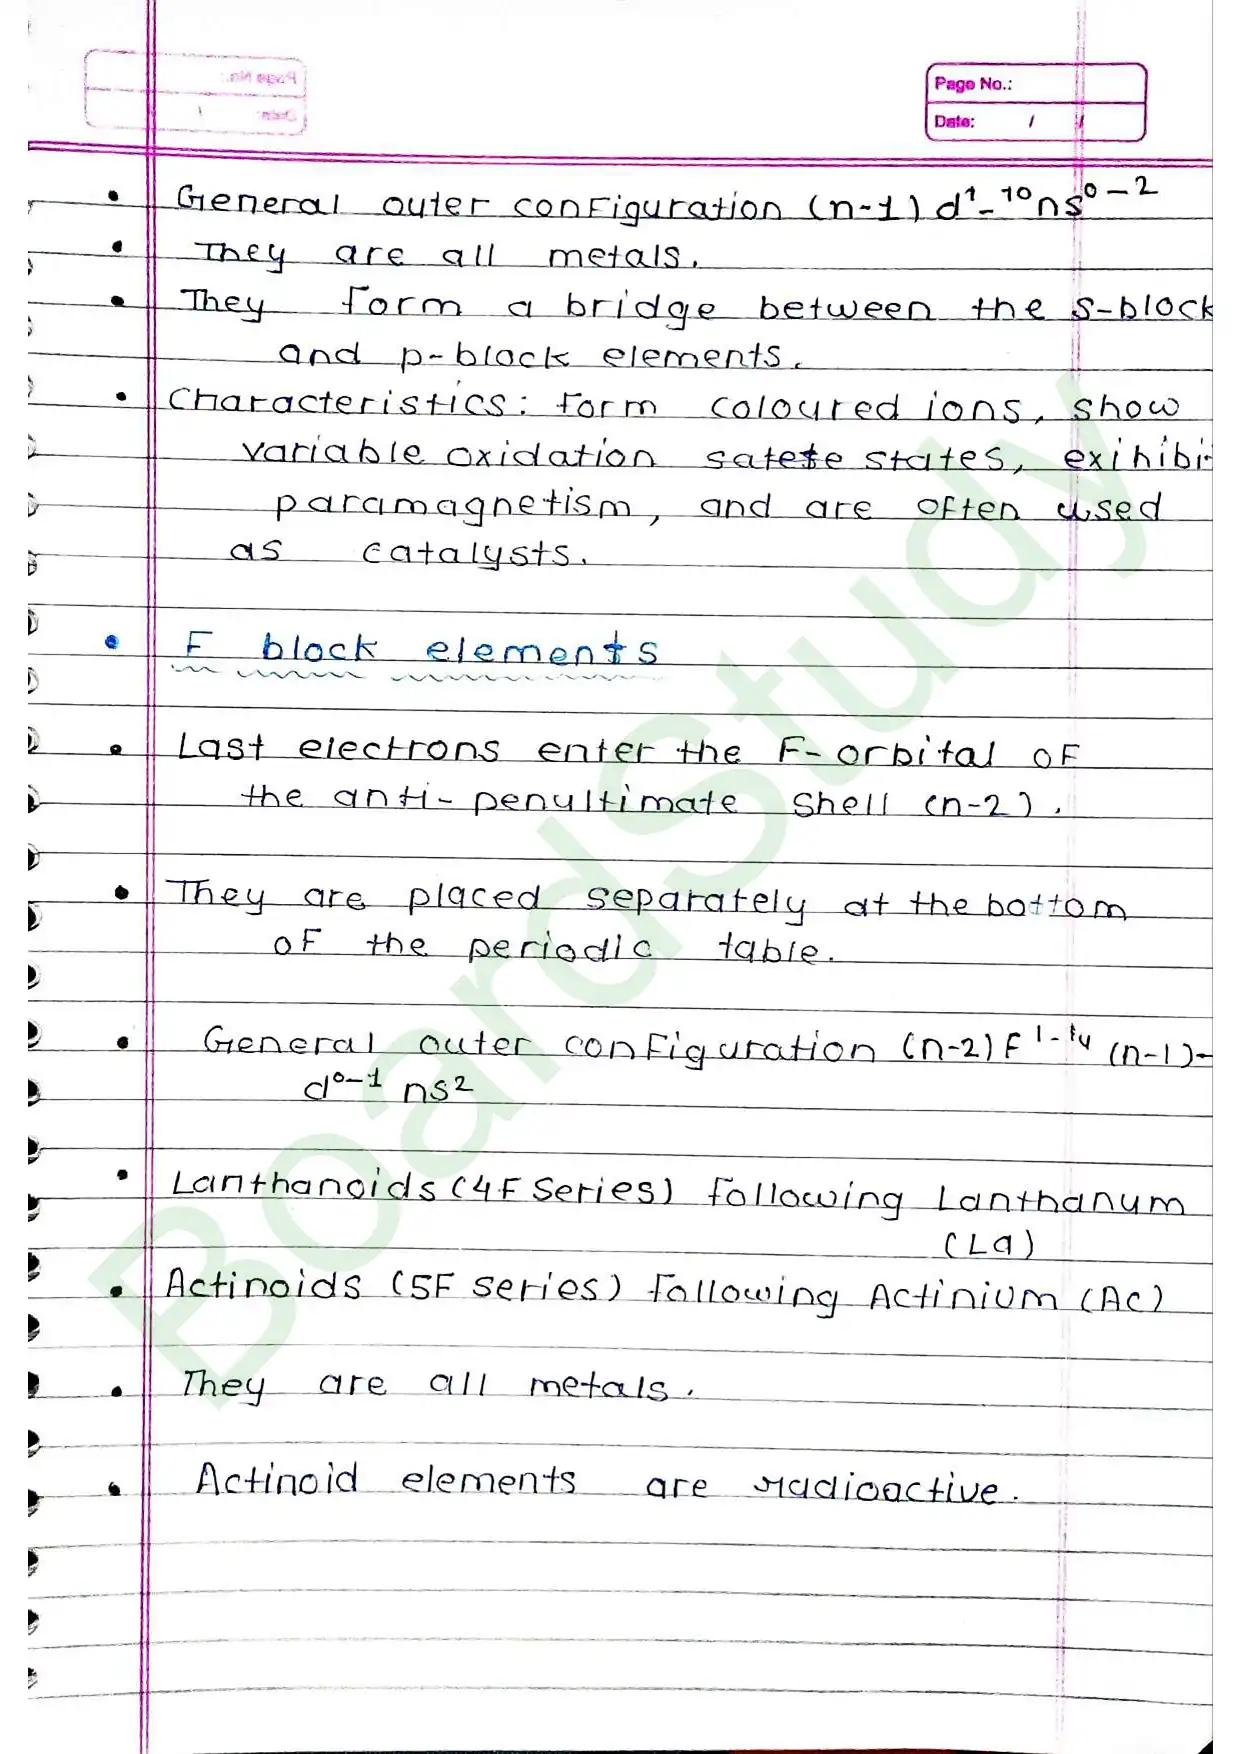 Page No.:
Date: / /
• General outer configuration (n-1) d¹-¹⁰ns⁰-²
• They are all metals.
• They form a bridge between the s-block
and p-block elements.
• Characteristics: form coloured ions, show
variable oxidation satete states, exihibit
paramagnetism, and are often used
as catalysts.
• F block elements
• Last electrons enter the F-orbital of
the anti-penultimate shell (n-2).
• They are placed separately at the bottom
of the periodic table.
• General outer configuration (n-2)F¹-¹⁴ (n-1)-
d⁰-¹ ns²
• Lanthanoids (4F series) following Lanthanum
(La)
• Actinoids (5F series) following Actinium (Ac)
• They are all metals.
• Actinoid elements are radioactive.
BoardStudy